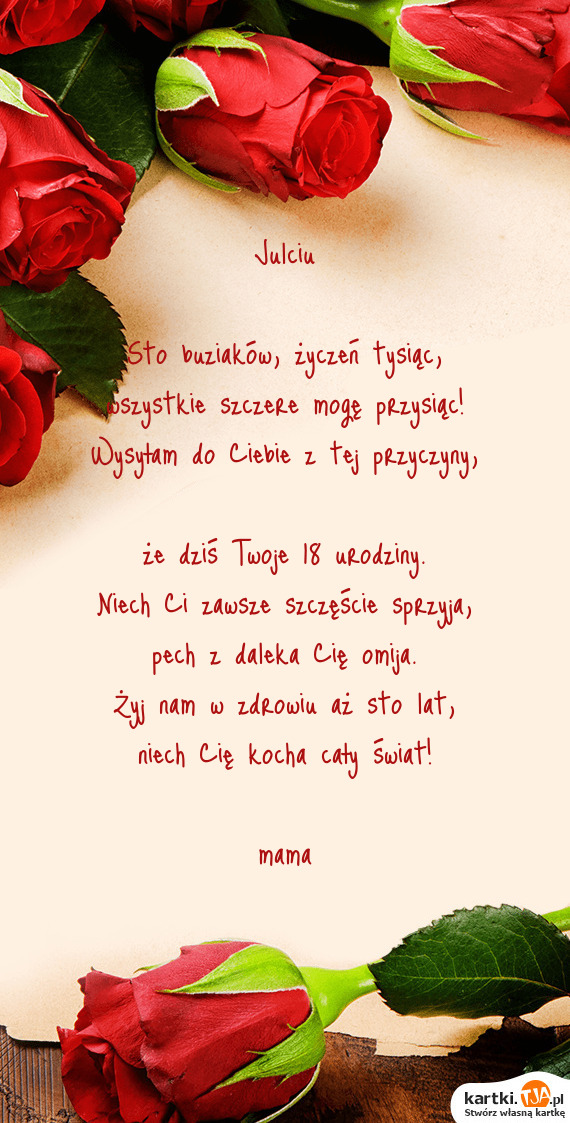 Julciu
Sto buziaków, życzeń tysiąc,
wszystkie szczere mogę przysiąc!
Wysyłam do Ciebie z tej przyczyny,
że dziś Twoje 18 urodziny.
Niech Ci zawsze szczęście sprzyja,
pech z daleka Cię omija.
Żyj nam w zdrowiu aż sto lat,
niech Cię kocha cały świat!
mama
kartki.TJA.pl
Stwórz własną kartkę